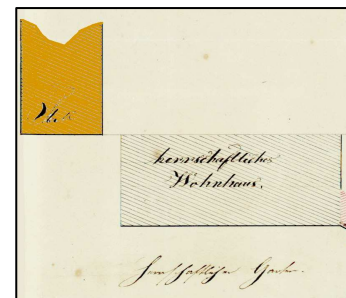 herrschaftliches
Wohnhaus.
herrschaftlicher Garten.